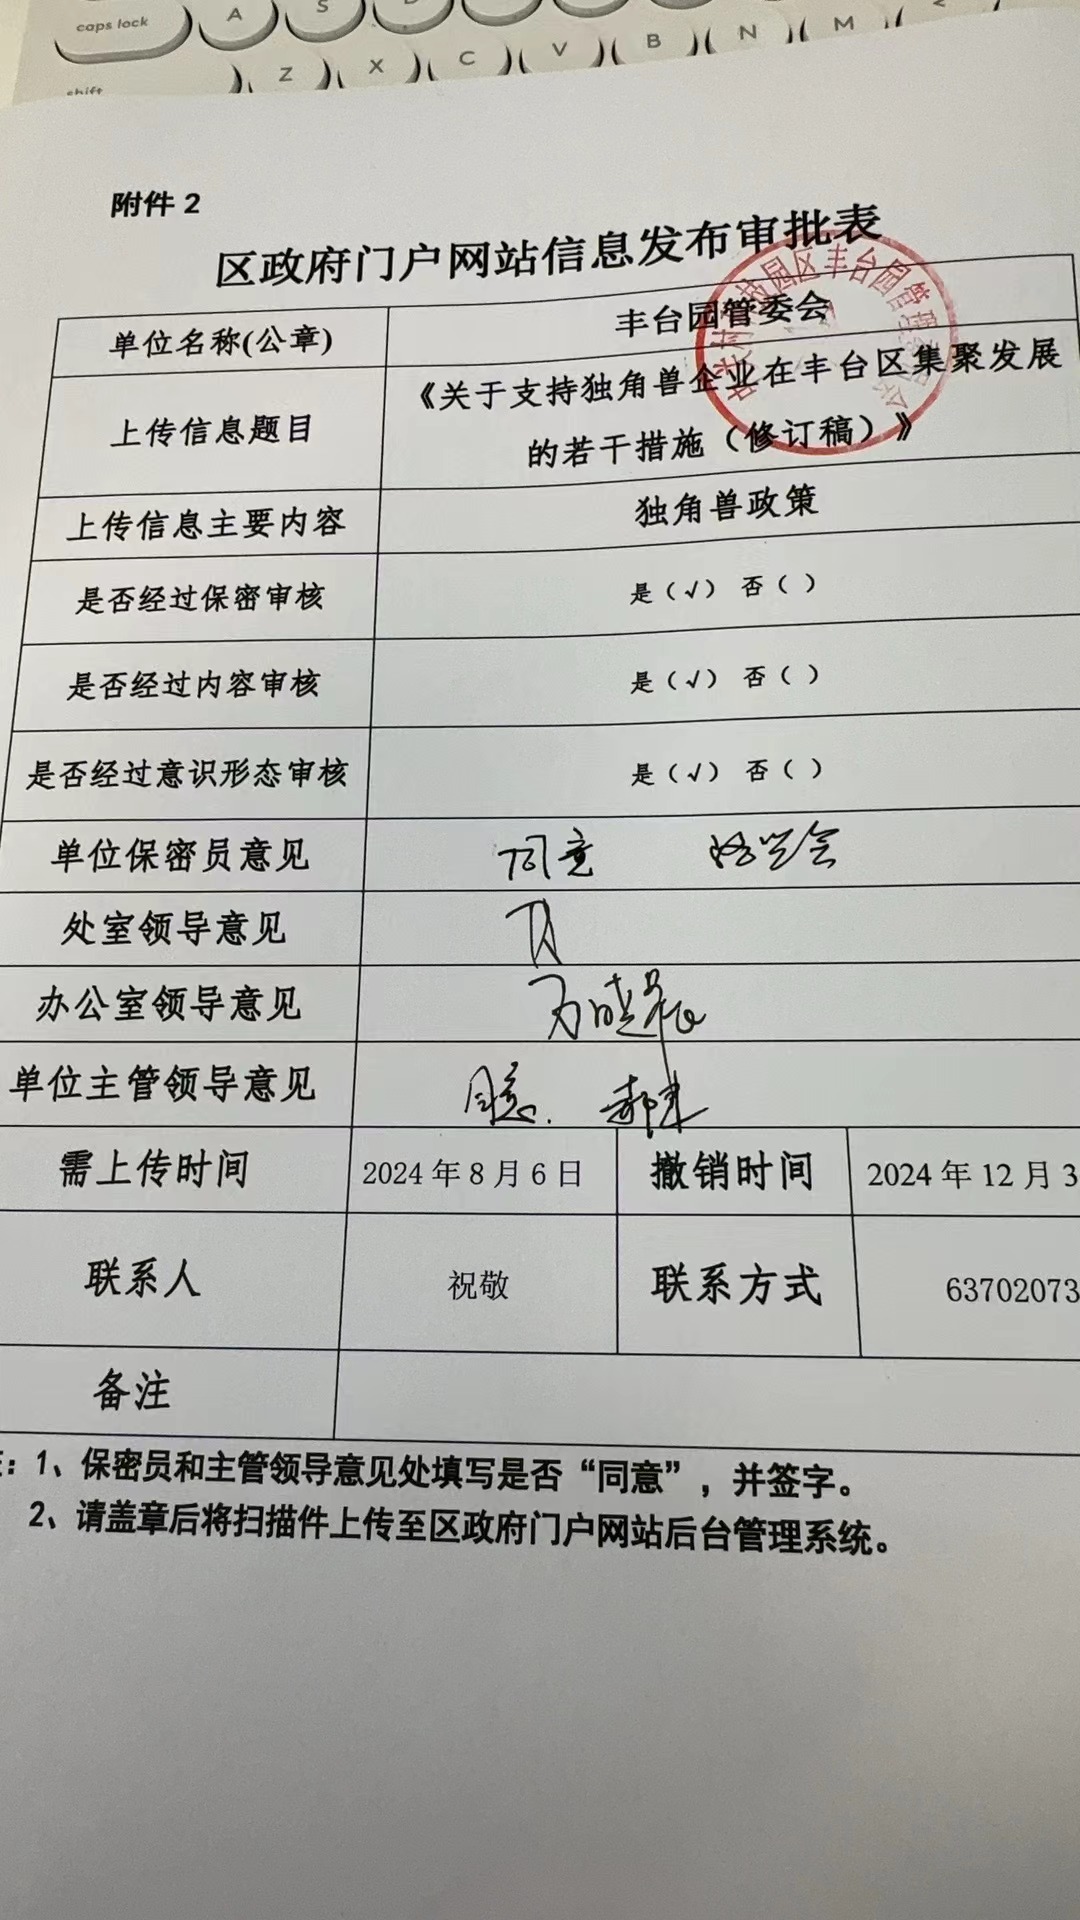 caps lock
A
S
D
shift
Z
X
C
V
B
N
M
附件 2
区政府门户网站信息发布审批表
单位名称(公章)
丰台园管委会
上传信息题目
《关于支持独角兽企业在丰台区集聚发展
的若干措施（修订稿）》
上传信息主要内容
独角兽政策
是否经过保密审核
是（√） 否（ ）
是否经过内容审核
是（√） 否（ ）
是否经过意识形态审核
是（√） 否（ ）
单位保密员意见
同意
处室领导意见
办公室领导意见
单位主管领导意见
同意.
需上传时间
2024 年 8 月 6 日
撤销时间
2024 年 12 月 3
联系人
祝敬
联系方式
63702073
备注
：1、保密员和主管领导意见处填写是否“同意”，并签字。
2、请盖章后将扫描件上传至区政府门户网站后台管理系统。